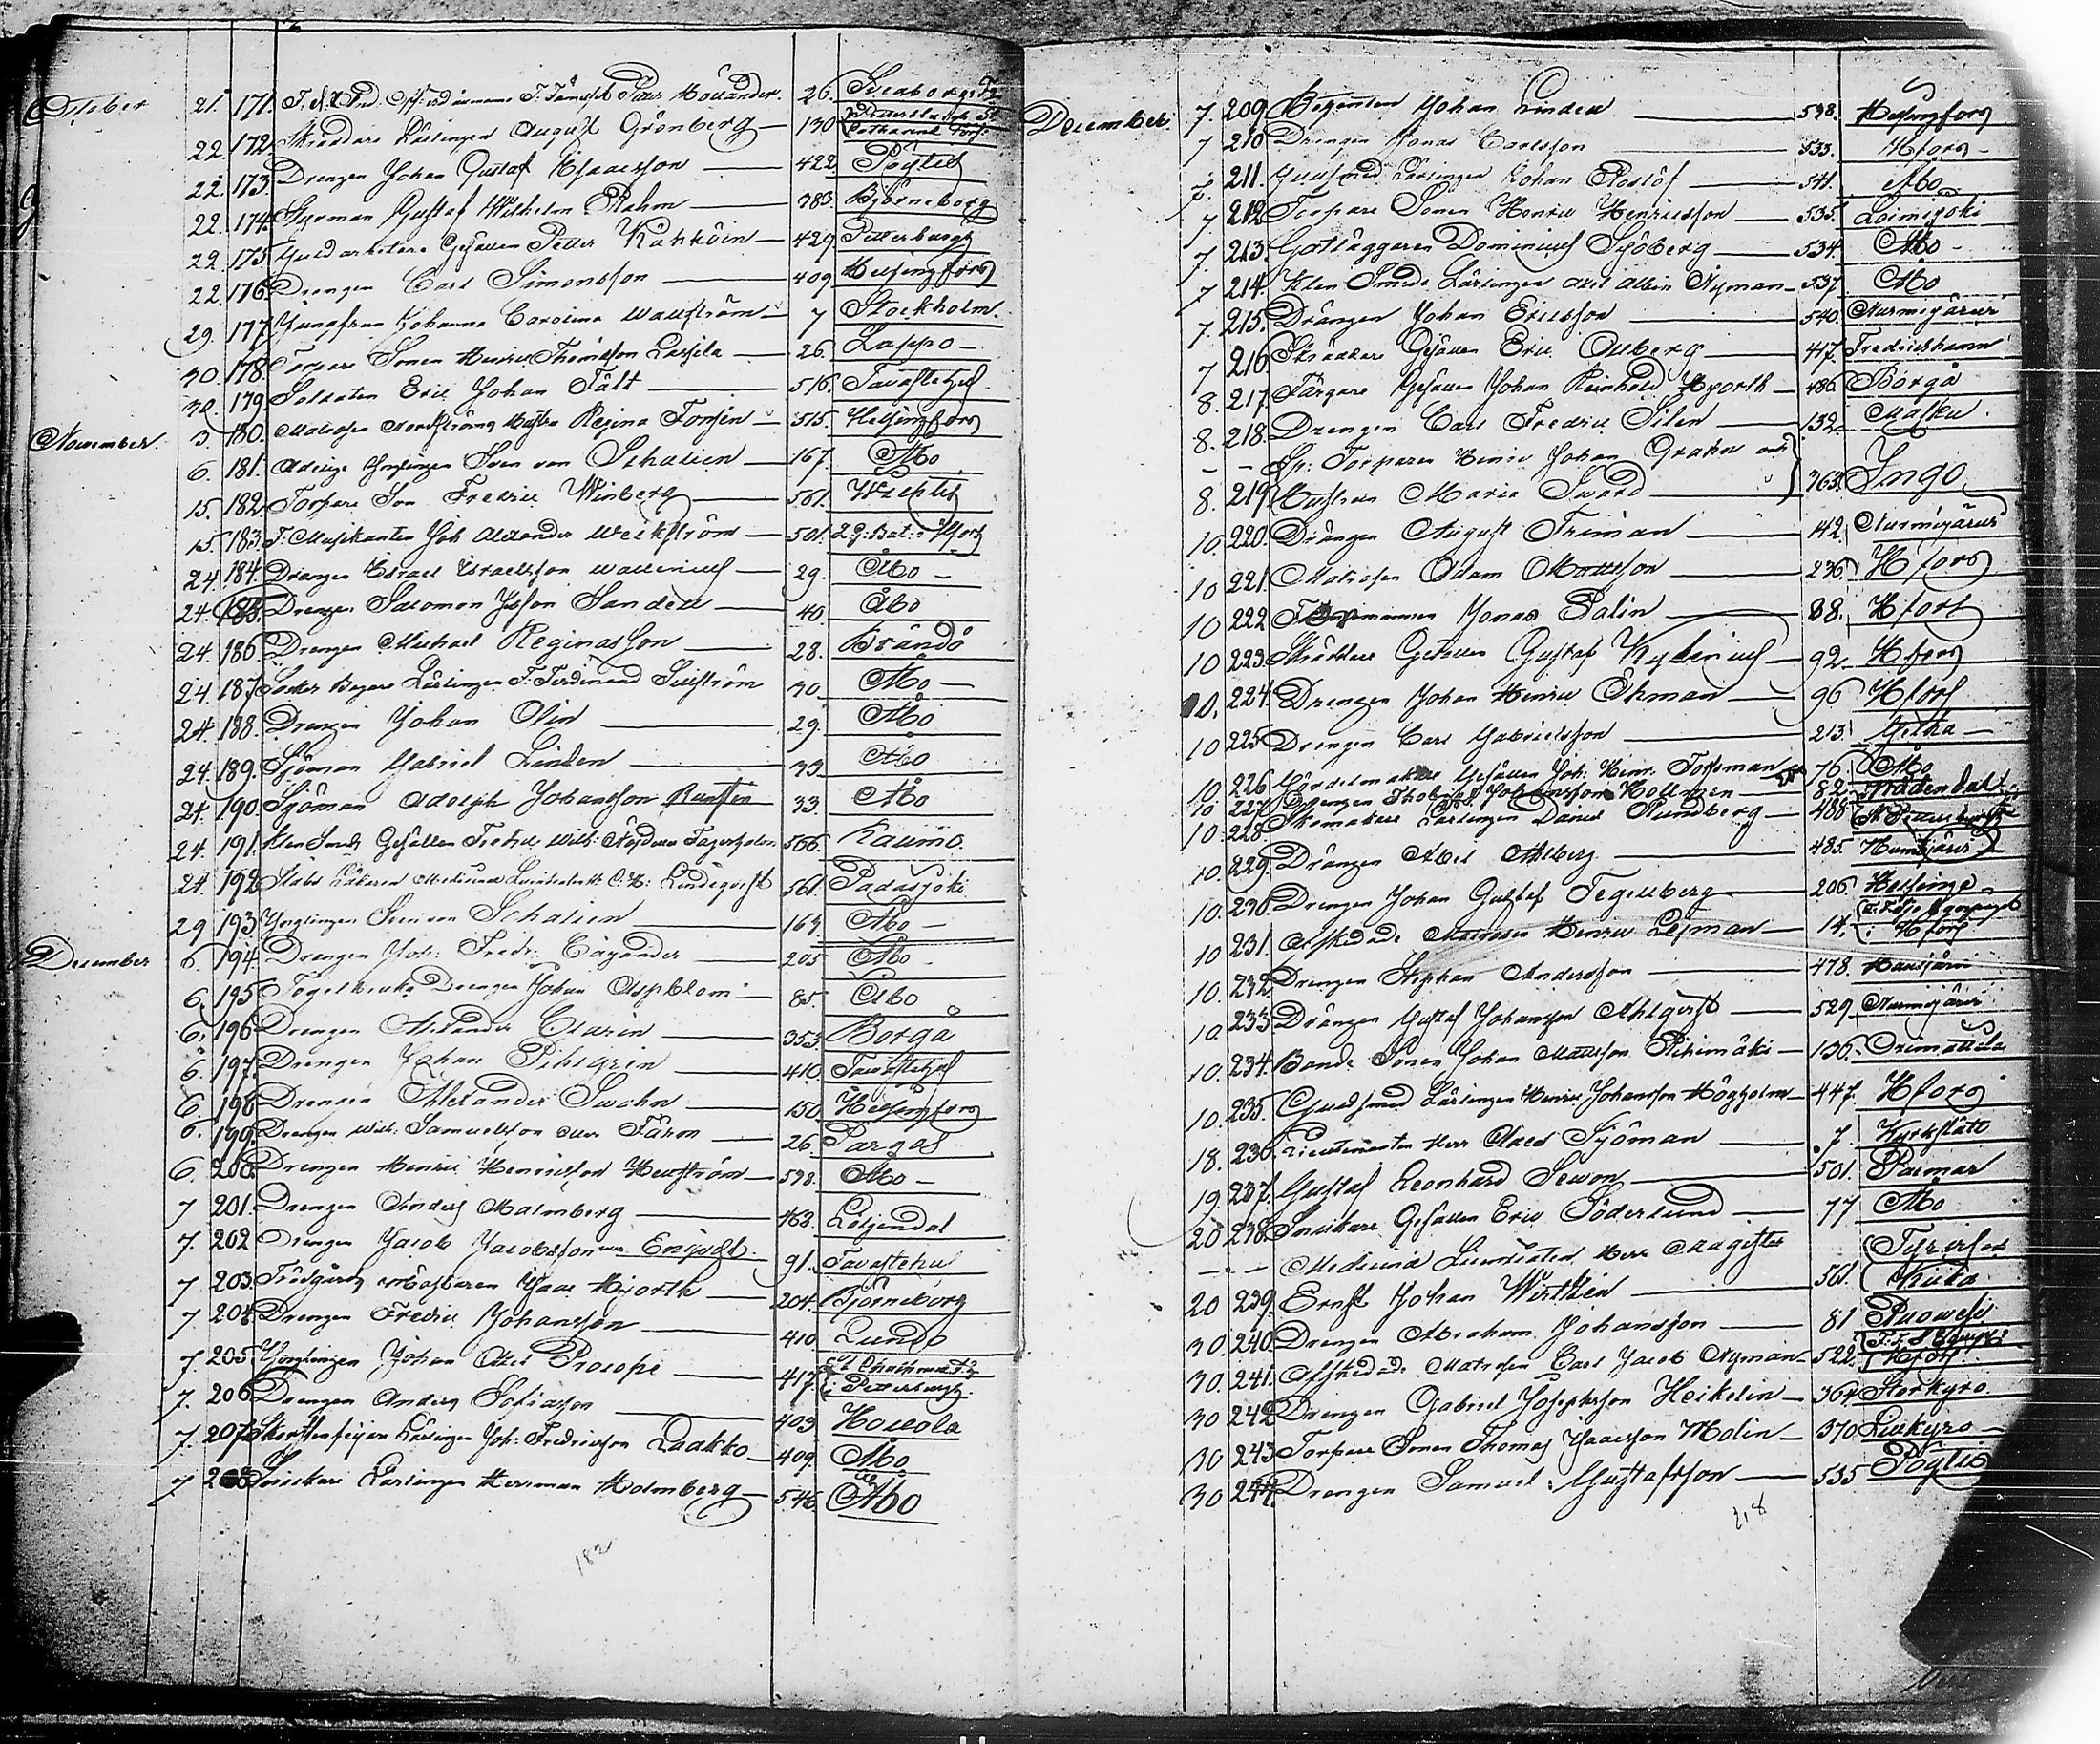 October 21. 171. Petter Holländer. 26. Sveaborgs
22. 172. Skräddare Lärlingen August Grönberg 130 Catharinæ Förs.
22. 173. Drengen Johan Gustaf Isaacsson 422. Pöytis
22. 174. Styrman Gustaf Wilhelm Rahm 383. Björneborg
22. 175. Guldarbetare Gesällen Petter Kähköin 429. Petterburg
22. 176. Drengen Carl Simonsson 409 Helsingfors
29. 177. Jungfrun Johanna Carolina Wallström 7 Stockholm.
30. 178. Torpare Sonen Henric Thomasson Lassila 26. Lappo
30. 179. Soldaten Eric Johan Fält 516. Tavastehus
November. 3. 180. Matrosen Nordströms Hustru Regina Forsen 515. Helsingfors
6. 181. Adelige Ynglingen Sven von Schalien 167. Åbo
15. 182. Torpare Son Fredric Winberg 561. Wichtis
15. 183. F: Musikanten Joh Alexander Weckström 501. Bat: i Hfors
24. 184. Drängen Israel Israelsson Wallenius 29. Åbo
24. 185. Drengen Salomon Sandell 40. Åbo
24. 186. Drengen Michael Reginasson 28. Brändö
24. 187. Socker Bagare Lärlingen F. Ferdinand Sillström 30. Åbo
24. 188. Drengen Johan Olin 29. Åbo
24. 189. Sjöman Gabriel Linden 33 Åbo
24. 190. Sjöman Adolph Johansson Runsten 33. Åbo
24. 191. Klen Smeds Gesällen Fredric Wilh: 566. Raumo.
24. 192. Stabs Läkaren Medicinæ Licentiaten C. H: Lindeqvist 561. Padasjoki
29 193 Ynglingen Sven von Schalien 167. Åbo
December 6. 194. Drengen Joh: Fredr: Cajander 205 Åbo
6. 195 Tegelbruks Drengen Johan Aspblom 85. Åbo
6. 196 Drengen Alexander Clarin 353. Borgå
6. 197 Drengen Johan Pihlgrén 410. Tavastehus
6. 198 Drengen Alexander Swahn 150. Helsingfors
6. 199. Drengen Wilh: Samuelsson eller Färm 26. Pargas
6. 200. Drengen Henric Henricsson Hellström 538. Åbo
7 201. Drengen Anders Malmberg 468. Liljendal
7. 202 Drengen Jacob Jacobsson Enqvist 91. Tavastehus
7 203. Trädgårds Mästaren Isaac Hjorth 204. Björneborg
7 204. Drengen Fredric Johansson 410 Lundo
7. 205 Ynglingen Johan Axel Procopé 417. i Petterburg.
7. 206 Drengen Anders Sofiasson 403 Hollola
7. 207. Skorstensfejare Lärlingen Joh: Fredricsson Laakko 409. Åbo
7 208. Snickare Lärlingen Herrman Holmberg 546. Åbo
182
December. 7. 209. Regenten Johan Lindell 538. Helsingfors
7 210 Drengen Jonas Carlsson 533. Hfors
7. 211. Guldsmed Lärlingen Johan Roslöf 541. Åbo
7 212. Torpare Sonen Henric Henricsson 535. Loimijoki
7. 213. Gatläggaren Dominicus Sjöberg 534. Åbo
7 214. Klen Smeds Lärlingen Axel Albin Nyman 537. Åbo
7. 215. Drängen Johan Ericsson 540 Nurmijärvi
7 216 Skräddare Gesällen Eric Ollberg 417. Fredrichshamn
8. 217. Färgare Gesällen Johan Reinhold Hjorth 486 Borgå
8. 218. Drengen Carl Fredric Silen 132. Masku
- - Sp: Torparen Henric Johan Grahn och
8. 219 Hustrun Maria Svärd 363. Ingo
10 220. Drängen August Friman 42. Nurmijärvi
10 221. Matrosen Adam Mattsson 236 Hfors
10 222 Jonas Palin 88. Hfors
10 223. Skräddare Gesällen Gustaf Kylenius 92. Hfors
10. 224. Drengen Johan Henric Ekman 96 Hfors
10 225 Drengen Carl Gabrielsson 213. Getha
10 226 Gördelmakare Gesällen Joh: Henr: Forsman 76. Åbo
10 227 Drengen Johansson Hollmen 82. Nådendal
10. 228 Skomakare Lärlingen Daniel Sundberg 488
10. 229. Drängen Abel Ahlberg 485.
10. 230. Drengen Johan Gustaf Tegelberg 206. Helsinge
10 231. Afskedade Matrosen Henric Lejman 14. i Hfors
10. 232 Drengen Stephan Andersson 478. Hausjärvi
10. 233 Drängen Gustaf Johansson Ahlqvist 529. Nurmijärvi
10. 234. Bonde Sonen Johan Mattsson Rihimäki 136. Orimattila
10. 235. Guldsmed Lärlingen Henric Johansson Högholm 447. Hfors
18. 236. Lieutenanten Herr Claes Sjöman 7 Kyrkslätt
19. 237. Gustaf Leonhard Sewon 501. Paimar
20 238. Snickare Gesällen Eric Söderlund 77 Åbo
- - Medicinæ Licentiaten Herr Magister
20 239. Ernst Johan Wirthén 561.
30. 240. Drengen Abraham Johansson 81
30. 241. Afskedade Matrosen Carl Jacob Nyman 522. Hfors
30 242 Drengen Gabriel Josephsson Heikelin 364 Storkyro.
30 243 Torpare Sonen Thomas Isaacsson Molin 370 Lillkyro
30 244. Drengen Samuel Gustafsson 535 Pöytis